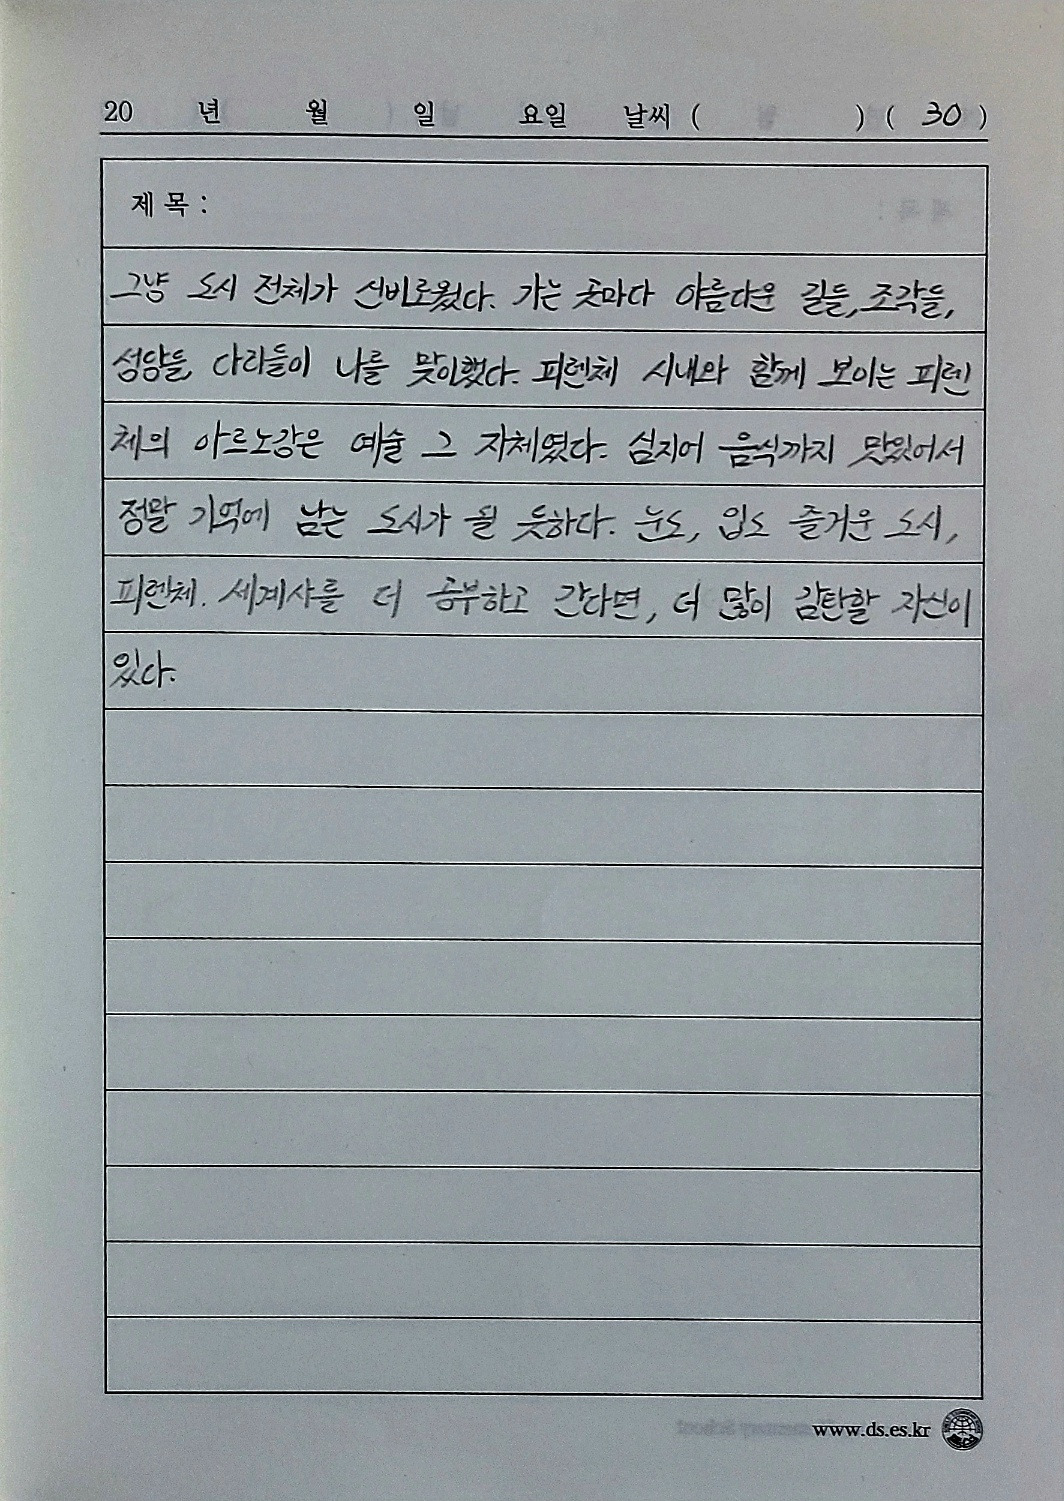 20 년 월 일 요일 날씨 ( ) ( 30 )
제 목 :
그냥 도시 전체가 신비로웠다. 가는 곳마다 아름다운 길들, 조각들,
성당들, 다리들이 나를 맞이했다. 피렌체 시내와 함께 보이는 피렌
체의 아르노강은 예술 그 자체였다. 심지어 음식까지 맛있어서
정말 기억에 남는 도시가 될 듯하다. 눈도, 입도 즐거운 도시,
피렌체. 세계사를 더 공부하고 간다면, 더 많이 감탄할 자신이
있다.
www.ds.es.kr